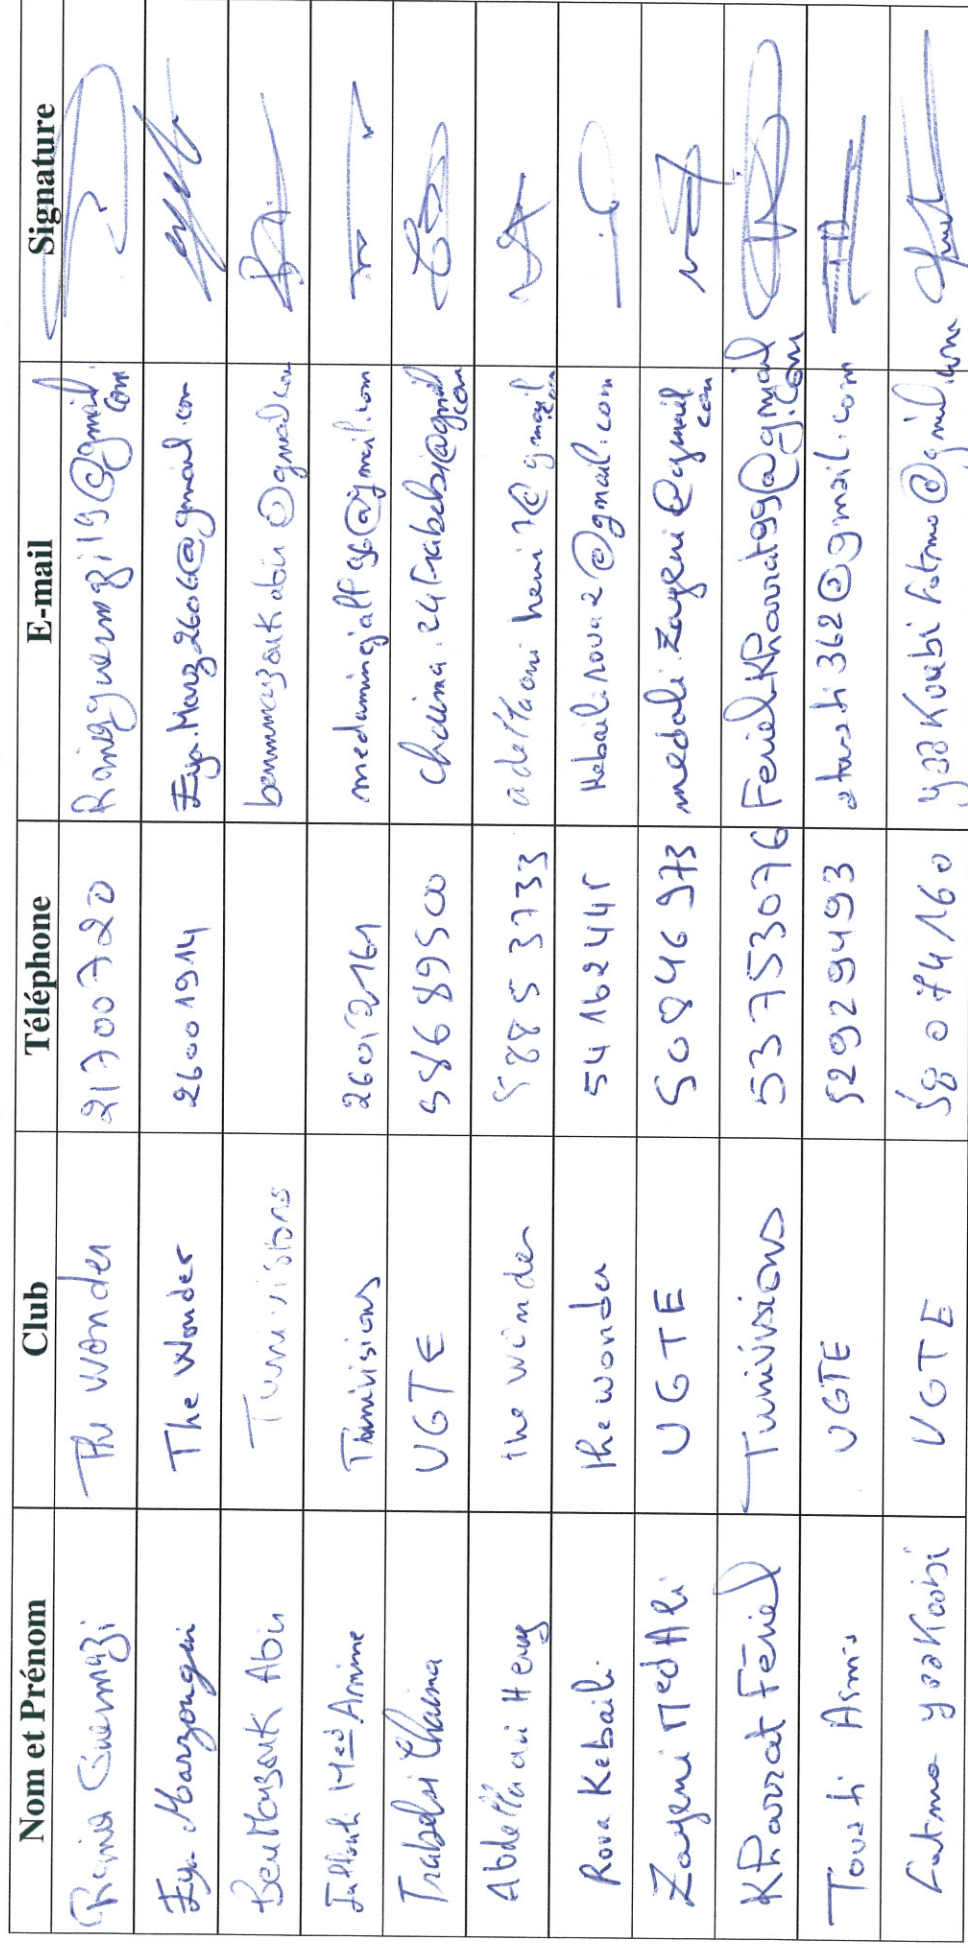 Nom et Prénom Club Téléphone E-mail Signature
Rania Guermazi The wonder 21700720 Raniaguermazi19@gmail.com
Eya Marzougui The Wonder 26001914 Eya.Marz2606@gmail.com
Ben Marzouk Abir Tunivisions benmarzoukabir@gmail.com
Med Amine Tunivisions 26012161
Trabelsi Chaima UGTE 58689500 chaima.24trabelsi@gmail.com
Abdellaoui Heny the wonder 58853733
Roua Kebaili the wonder 54162445 Kebailiroua2@gmail.com
Zayeni Med Ali UGTE 50846973 medali.zayeni@gmail.com
Kharrat Fériel Tunivisions 53753076 FerielKharrat99@gmail.com
Touati Asma UGTE 52929493 atouati362@gmail.com
Fatma yaakoubi UGTE 58074160